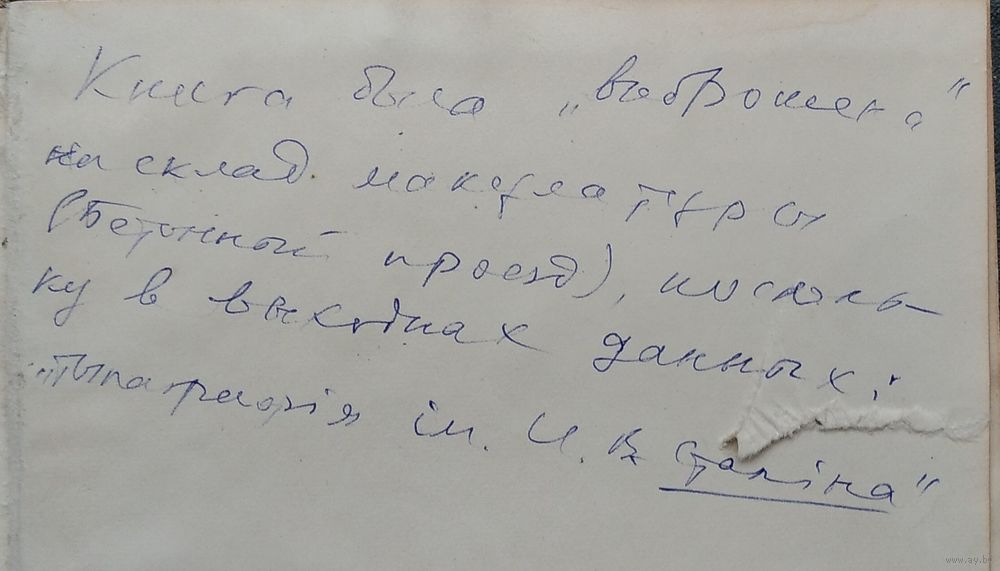 Книга была „выброшена“
на склад макулатуры
(Бетонный проезд), посколь-
ку в выходных данных:
„Тыпаграфія ім. И. В Сталіна“
www.ay.by